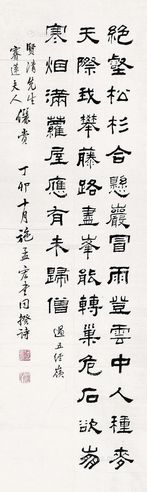 絕壑松杉合懸巖冒雨登雲中人種麥
天際我攀藤路盡峯能轉巢危石欲崩
寒烟滿蘿屋應有未歸僧 過五経嶺
賢清先生
睿蓮夫人 儷賞
丁卯十月施孟宏書田撥詩